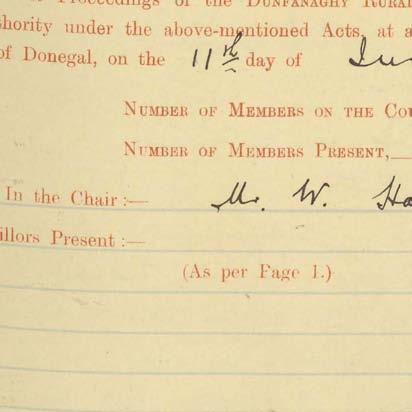 Proceedings of the Dunfanaghy Rural
thority under the above-mentioned Acts, at a
of Donegal, on the 11th day of
Number of Members on the Cou
Number of Members Present,
In the Chair:— Mr. W. Ha
illors Present :—
(As per Page 1.)